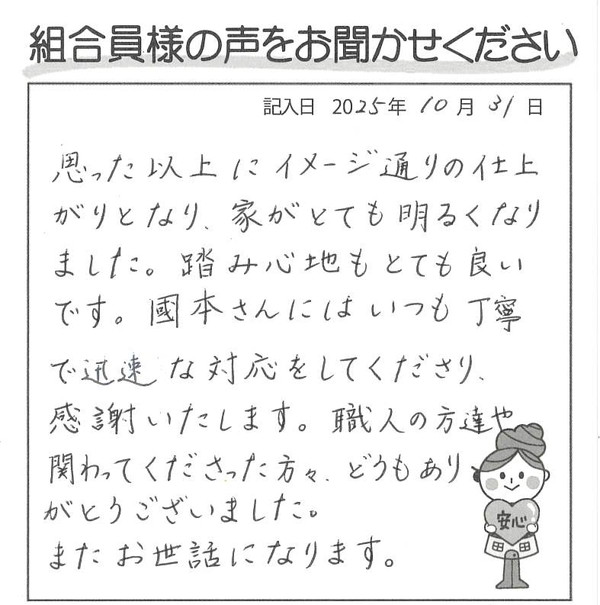 組合員様の声をお聞かせください
記入日 2025年 10月 31日
思った以上にイメージ通りの仕上
がりとなり、家がとても明るくなり
ました。踏み心地もとても良い
です。國本さんにはいつも丁寧
で迅速な対応をしてくださり、
感謝いたします。職人の方達や
関わってくださった方々、どうもあり
がとうございました。
またお世話になります。
安心